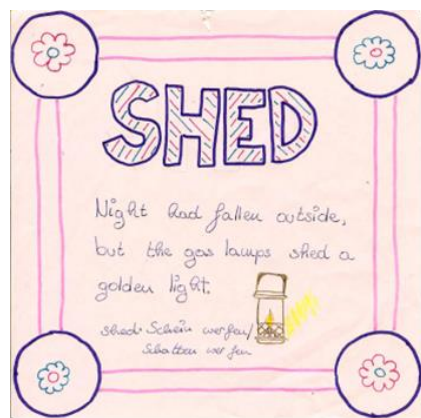 SHED
Night had fallen outside,
but the gas lamps shed a
golden light.
shed: Schein werfen/
Schatten werfen